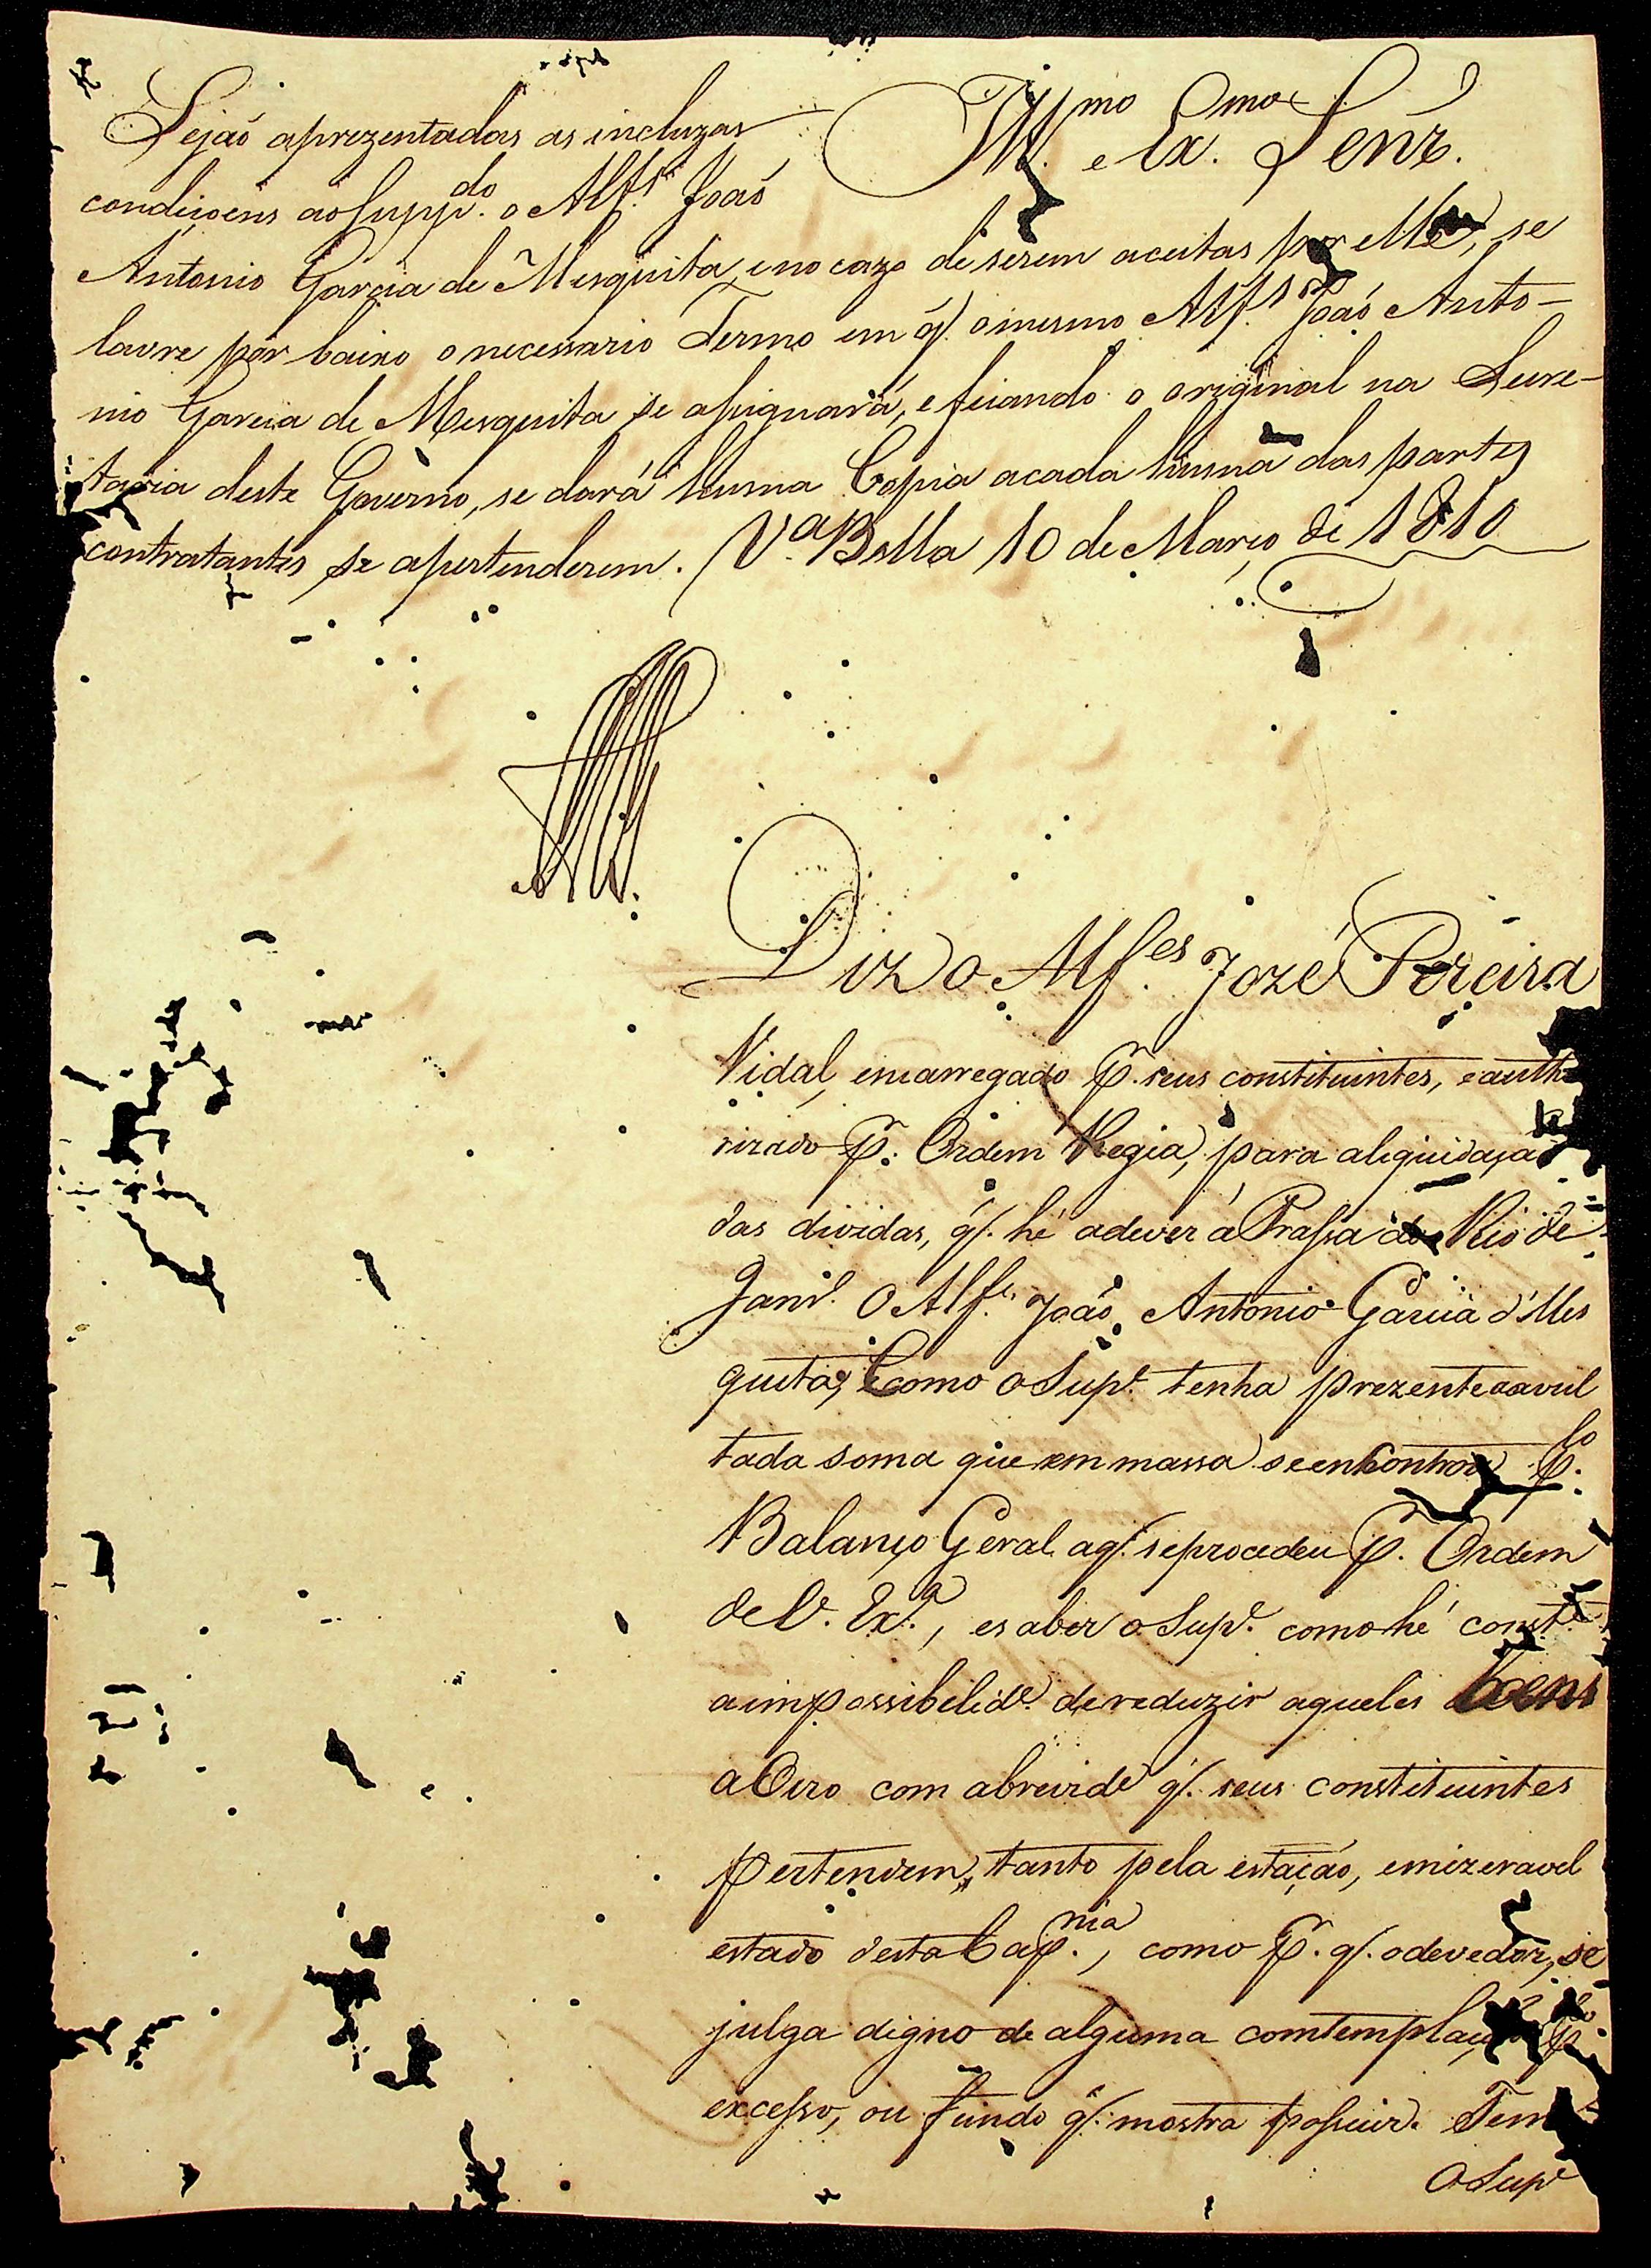 Ill.mo e Ex.mo Senr.
Sejaó aprezentadas as incluzas
condiçoens ao supp.do o Alf.s Joaó
Antonio Garcia de Mesquita, e no cazo de serem aceitas por elle, se
lavre por baixo o necessario Termo em q̃ o mesmo Alf.s Joaó Anto-
nio Garcia de Mesquita se assignará, e ficando o original na Secre-
taria deste Governo, se dará huma Copia a cada huma das partes
contratantes se a pertenderem. V.a Bella 10 de Março de 1810
Diz o Alf.es Jozé Pereira
Vidal, encarregado p.r seus constituintes, e autho
rizado p.r Ordem Regia, para a liquidaçaó
das dividas, q̃ hé a dever á Prassa do Rio de
Janr.o O Alf.es Joaó Antonio Garcia d'Mes
quita; E como o Sup.e tenha prezente a avul
tada soma que em massa se encontrou p.lo
Balanço Geral a q̃ se procedeu p.r Ordem
de V. Ex.a, e saber o Sup.e como hé const.e
a impossibelid.e de reduzir aqueles bens
a Oiro com a brevid.e q̃ seus constituintes
pertendem, tanto pela estaçáo, e mizeravel
estado desta Cap.nia, como p.r q̃ o devedor, se
julga digno de alguma comtemplaçaó p.lo
excesso, ou fundo q̃ mostra possuir. Tem
O Sup.e